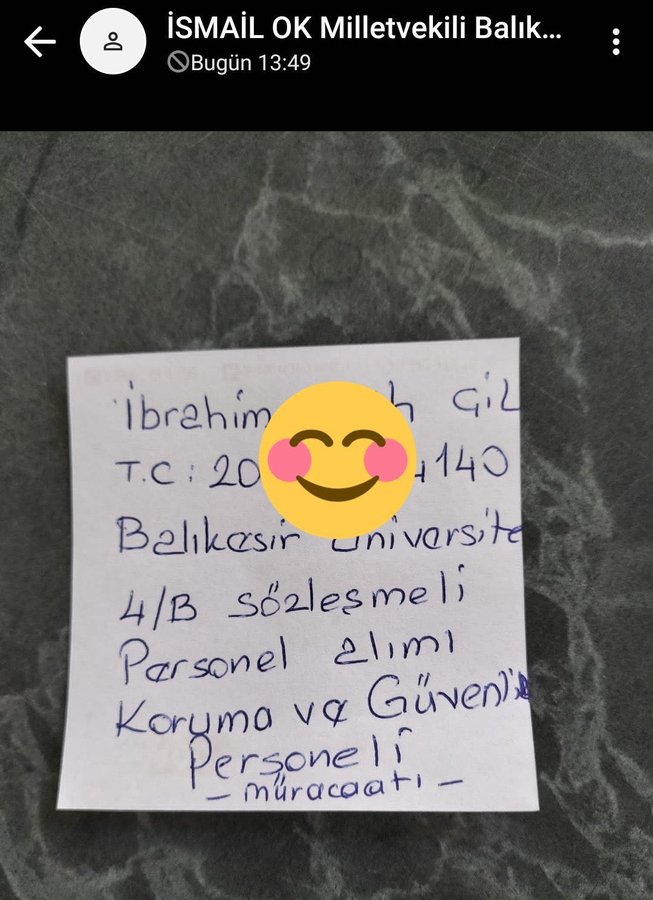 İSMAİL OK Milletvekili Balık...
Bugün 13:49
İbrahim GİL
T.C: 20 4140
Balıkesir Üniversite
4/B sözleşmeli
Personel alımı
Koruma ve Güvenli
Personeli
- müracaatı -